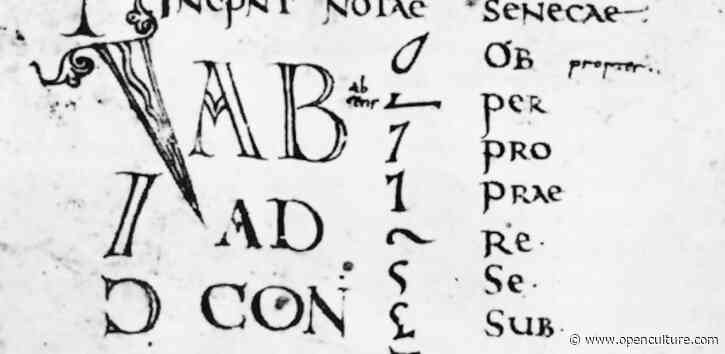 INCPNT NOTAE SENECAE
AB
AD
CON
OB propter..
PER
PRO
PRAE
RE.
SE.
SUB.
© www.openculture.com